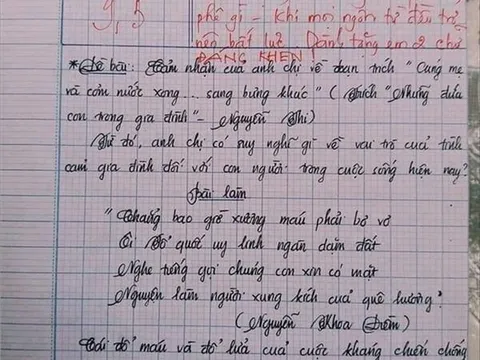 9,5
phê gì – Khi mới ngắn từ đầu trở
nên bất lực Dành tặng em 2 chữ
ĐÁNG KHEN!
* Đề bài: Cảm nhận của anh chị về đoạn trích "Cúng mẹ
và cơm nước xong... sang bưng khác" (Trích "Những đứa
con trong gia đình" – Nguyễn Thi)
Từ đó, anh chị có suy nghĩ gì về vai trò của tình
cảm gia đình đối với con người trong cuộc sống hiện nay?
Bài làm
"Chẳng bao giờ xương máu phải bơ vơ
Ôi Tổ quốc uy linh ngàn dặm đất
Nghe tiếng gọi chúng con xin có mặt
Nguyện làm người xung kích của quê hương"
(Nguyễn Khoa Điềm)
Cái đổ máu và đổ lửa của cuộc kháng chiến chống